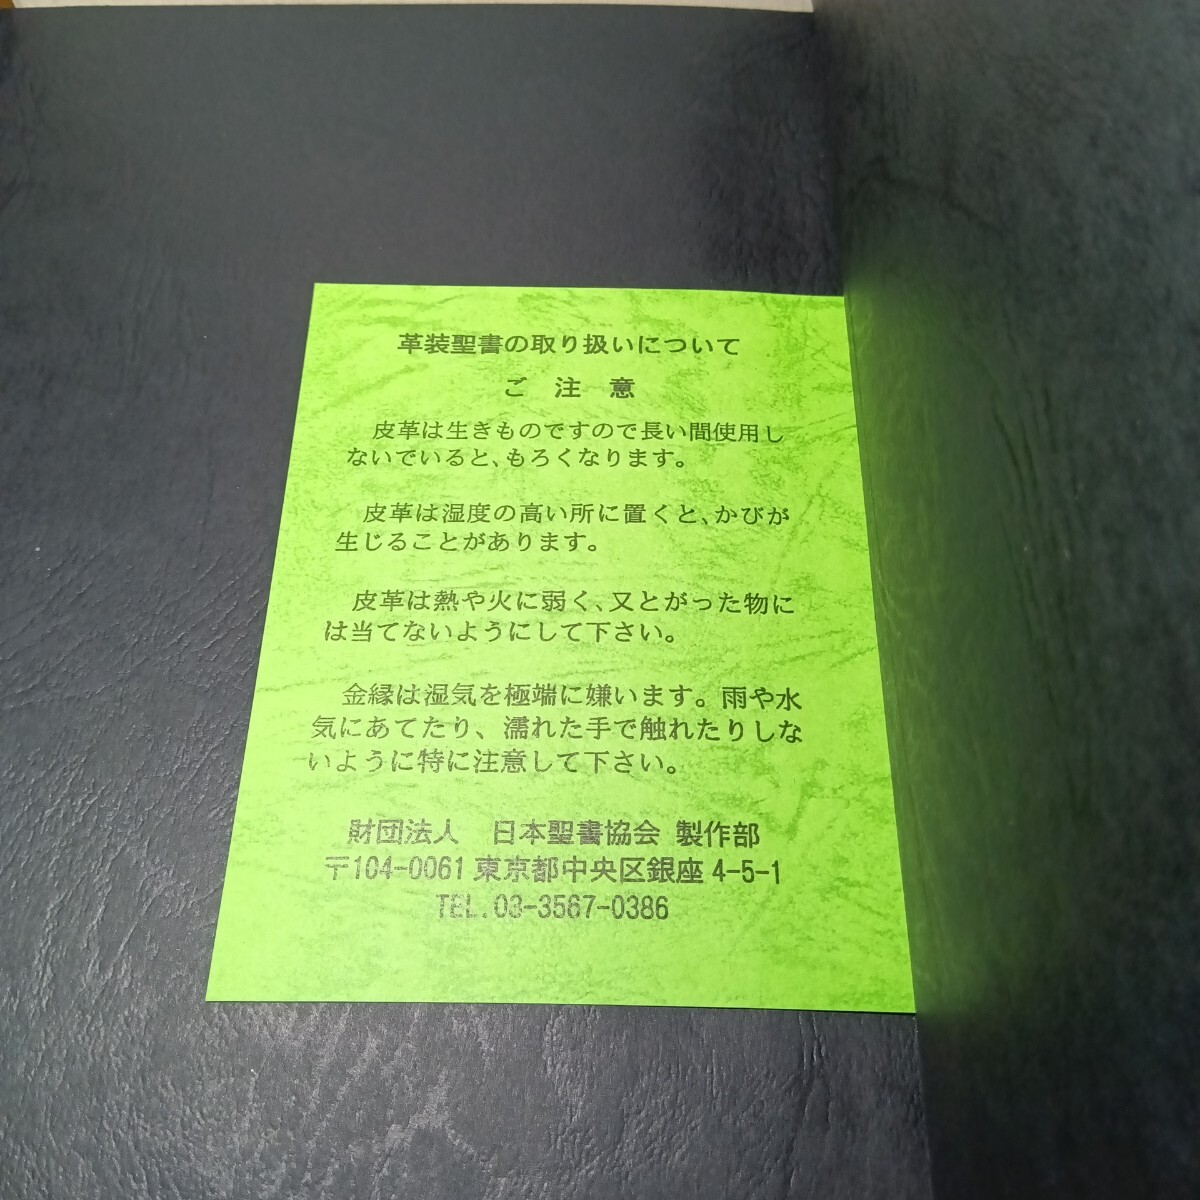 革装聖書の取り扱いについて
ご 注 意
皮革は生きものですので長い間使用し
ないでいると、もろくなります。
皮革は湿度の高い所に置くと、かびが
生じることがあります。
皮革は熱や火に弱く、又とがった物に
は当てないようにして下さい。
金縁は湿気を極端に嫌います。雨や水
気にあてたり、濡れた手で触れたりしな
いように特に注意して下さい。
財団法人 日本聖書協会 製作部
〒104-0061 東京都中央区銀座 4-5-1
TEL.03-3567-0386